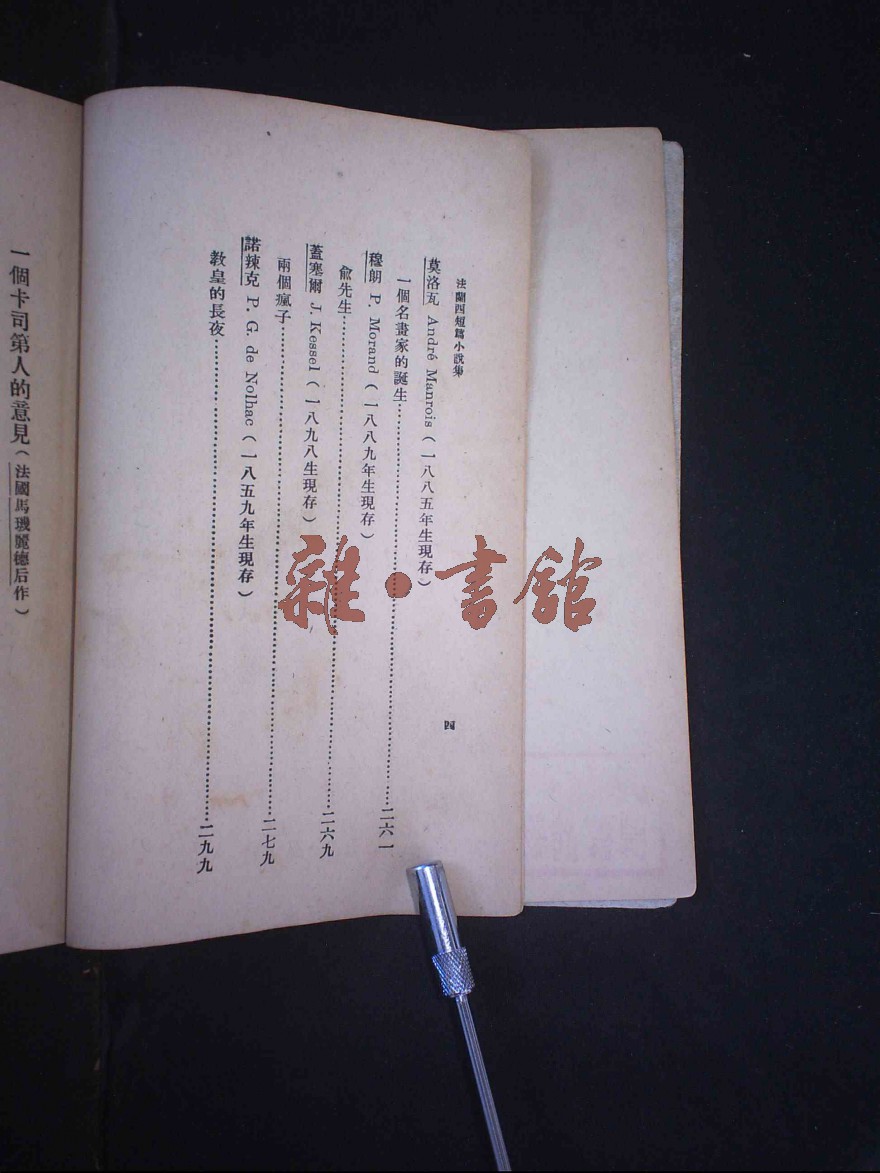 法蘭西短篇小說集
莫洛瓦 André Manrois（一八八五年生現存）
一個名畫家的誕生……二六一
穆朗 P. Morand（一八八九年生現存）
俞先生……二六九
蓋塞爾 J. Kessel（一八九八生現存）
兩個瘋子……二七九
諾辣克 P. G. de Nolhac（一八五九年生現存）
教皇的長夜……二九九
四
一個卡司第人的意見（法國馬璣麗德后作）
雜·書館